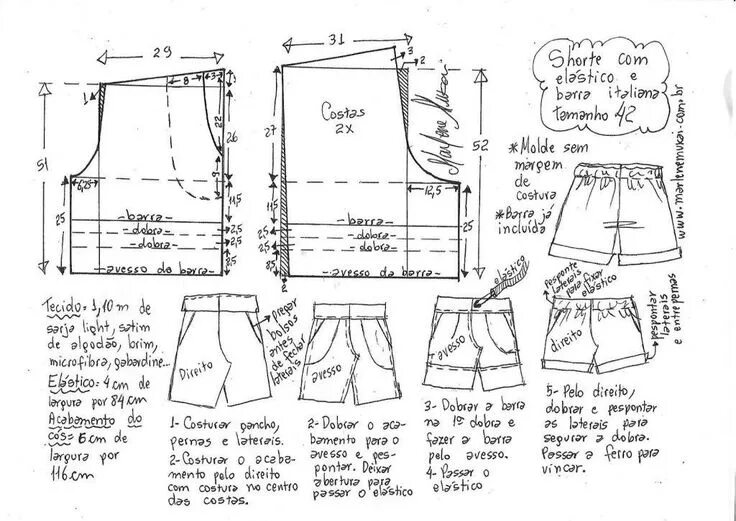 29
31
Shorte com
elástico e
barra italiana
tamanho 42
www.marlenemukai.com.br
Marlene Mukai
*Molde sem
margem
de
costura
*Barra já
incluída
1
8
3
1
22
26
9
51
6,25
11,5
25
-barra-
-dobra-
-dobra-
2,5
2,5
-avesso da barra-
3
2
Costas
2X
27
52
12,5
11,5
25
2,5
2,5
8,5
-barra-
-dobra-
-dobra-
-avesso da barra-
2
Tecido= 1,10 m de
sarja light, satim
de algodão, brim,
microfibra, gabardine...
Elástico= 4 cm de
largura por 84 cm
Acabamento do
cós= 6 cm de
largura por
116 cm
Direito
pregar
bolsos
antes
de fechar
laterais
avesso
elástico
avesso
pesponte
laterais
para fixar
elástico
direito
pespontar
laterais
e entrepernas
1- Costurar gancho,
pernas e laterais.
2- Costurar o acaba-
mento pelo direito
com costura no centro
das costas.
2- Dobrar o aca-
bamento para o
avesso e pes-
pontar. Deixar
abertura para
passar o elástico
3- Dobrar a barra
na 1º dobra e
fazer a barra
pelo avesso.
4- Passar o
elástico
5- Pelo direito,
dobrar e pespontar
as laterais para
segurar a dobra.
Passar a ferro para
vincar.